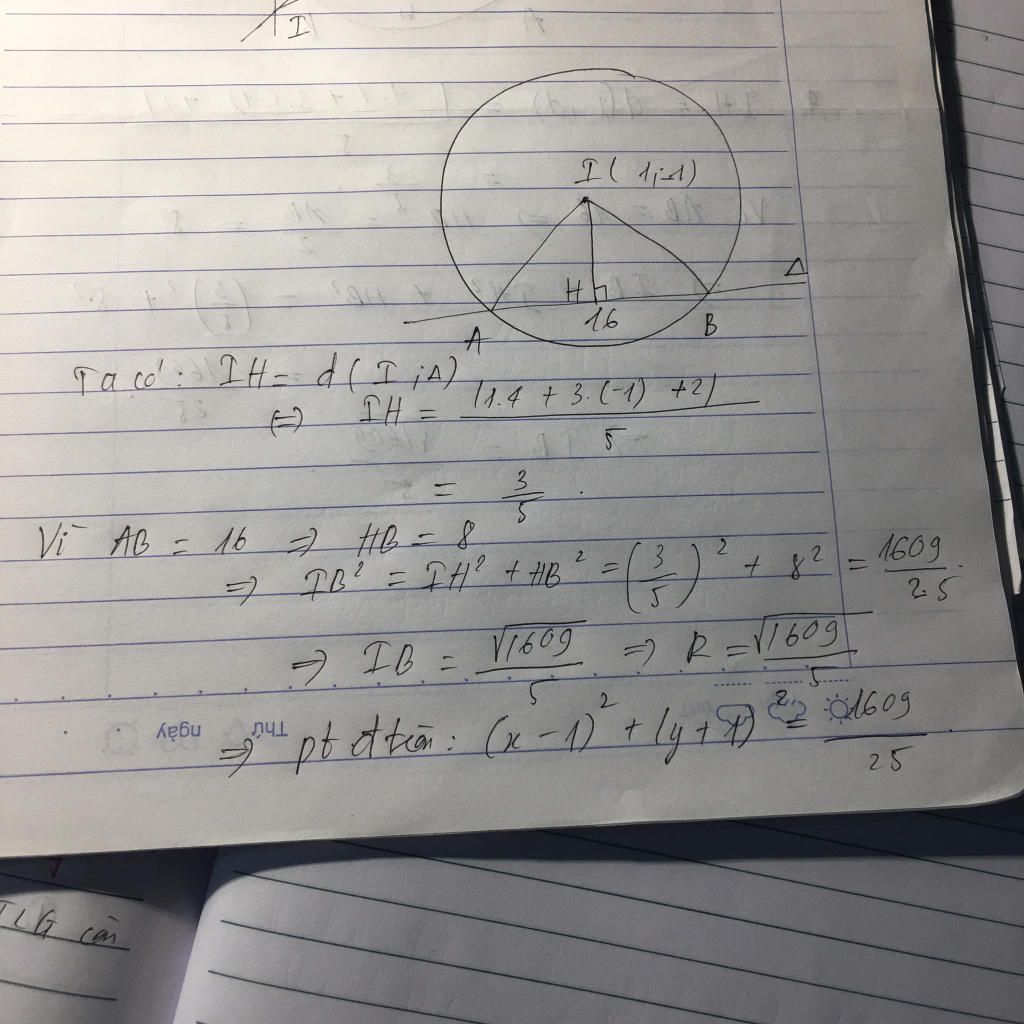 I
I ( 1;-1)
Δ
H
A
16
B
Ta có: IH = d ( I ; Δ)
(=) IH = |1.4 + 3.(-1) + 2| / 5
= 3/5 .
Vì AB = 16 => HB = 8
=> IB² = IH² + HB² = (3/5)² + 8² = 1609/25.
=> IB = √1609/5 => R = √1609/5
Thứ ngày
=> pt đ tròn: (x - 1)² + (y + 1)² = 1609/25 .
TLG cân